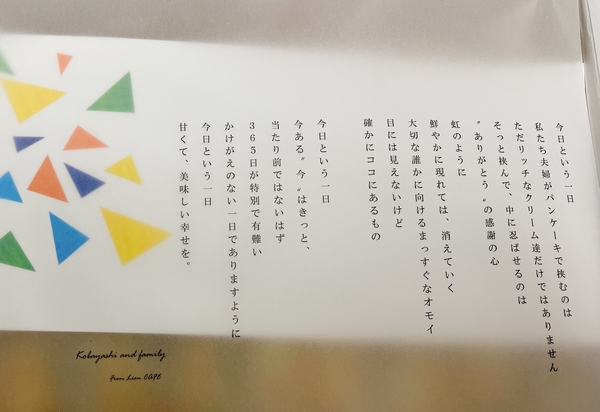 今日という一日
私たち夫婦がパンケーキで挟むのは
ただリッチなクリーム達だけではありません
そっと挟んで、中に忍ばせるのは
〝ありがとう〟の感謝の心
虹のように
鮮やかに現れては、消えていく
大切な誰かに向けるまっすぐなオモイ
目には見えないけど
確かにココにあるもの
今日という一日
今ある〝今〟はきっと、
当たり前ではないはず
365日が特別で有難い
かけがえのない一日でありますように
今日という一日
甘くて、美味しい幸せを。
Kobayashi and family
From Lien CAFE